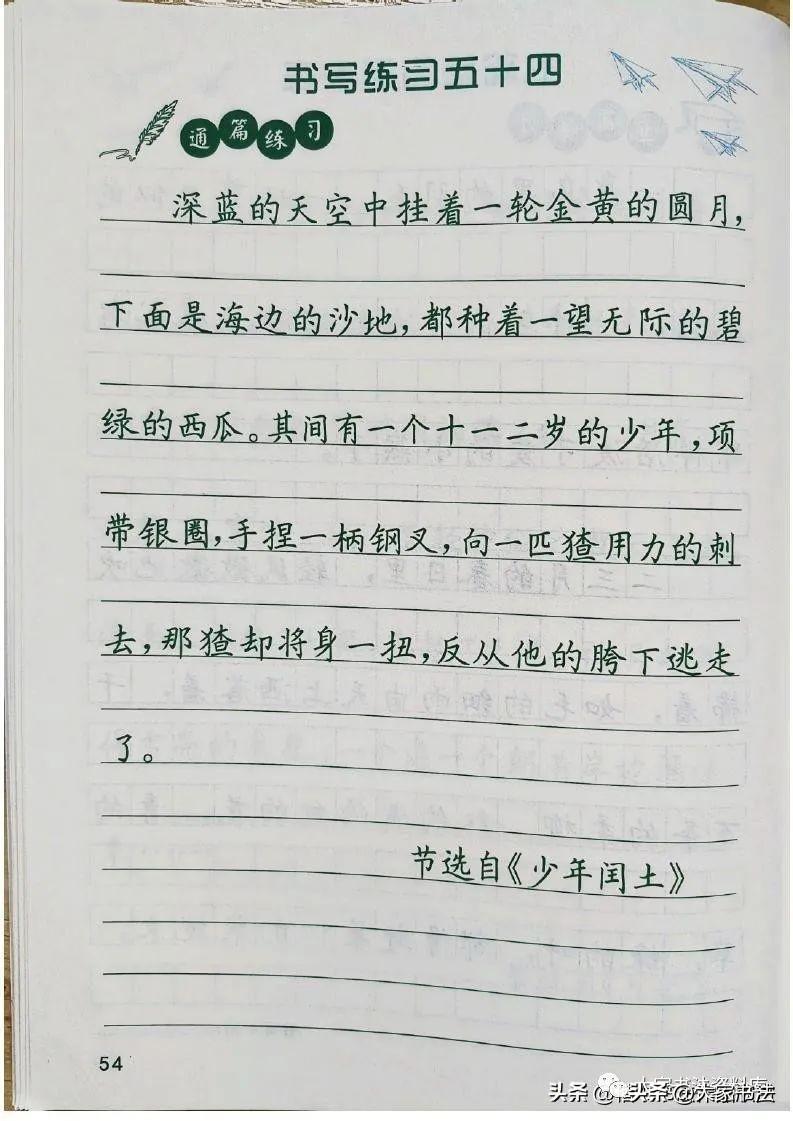 书写练习五十四
通篇练习
深蓝的天空中挂着一轮金黄的圆月，
下面是海边的沙地，都种着一望无际的碧
绿的西瓜。其间有一个十一二岁的少年，项
带银圈，手捏一柄钢叉，向一匹猹用力的刺
去，那猹却将身一扭，反从他的胯下逃走
了。
节选自《少年闰土》
54
头条@大家书法